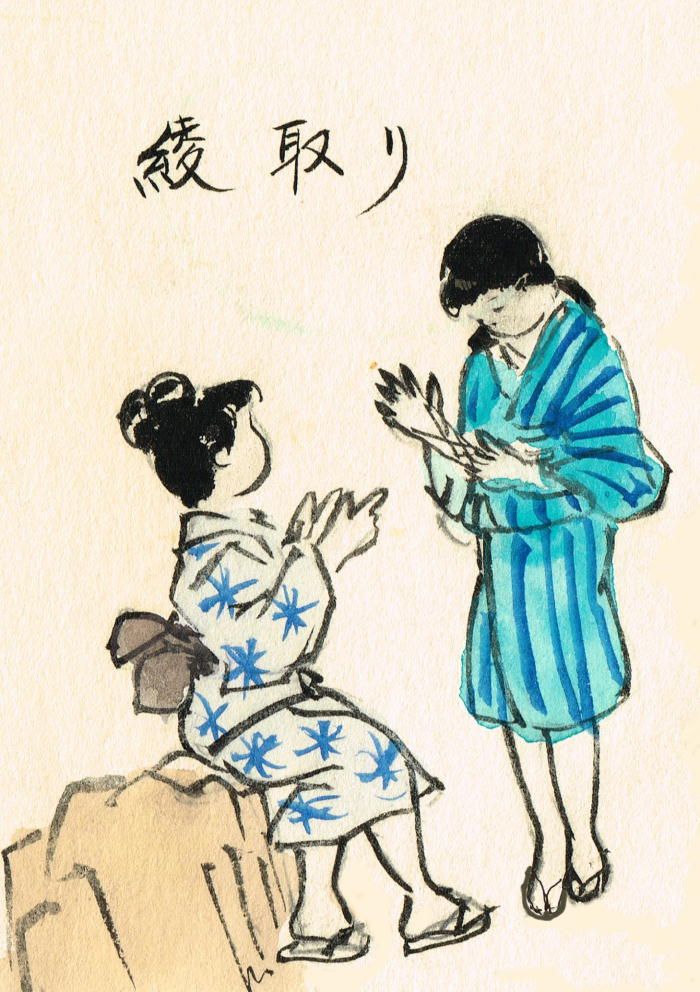 綾取り